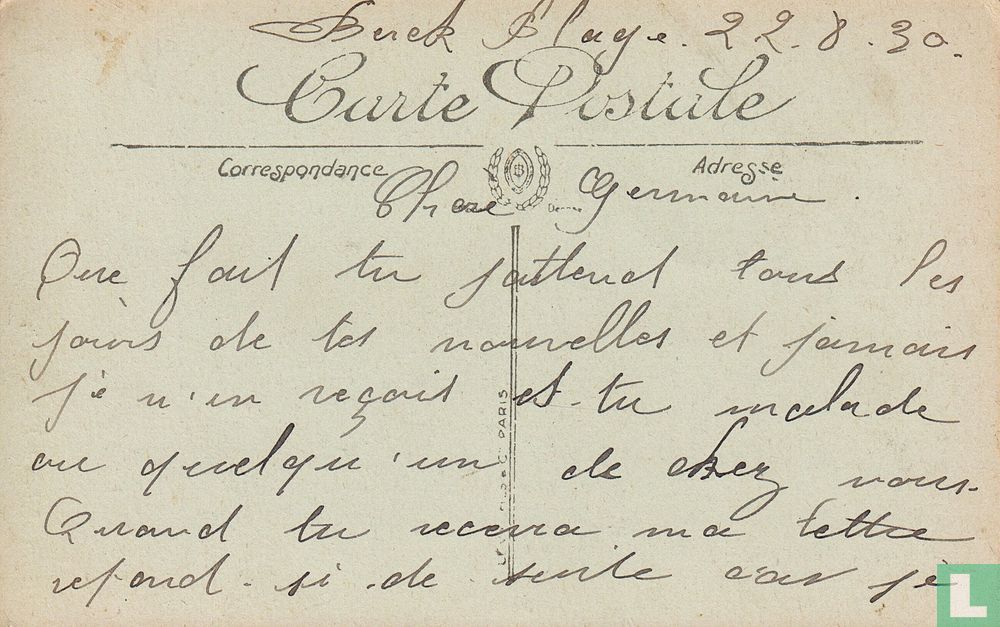 Berck Plage. 22.8.30.
Carte Postale
Correspondance
Adresse
Chere Germaine.
Que fait tu jattend tous les
jours de tes nouvelles et jamais
je n'en reçois est-tu malade
ou quelqu'un de chez vous.
Quand tu recevra ma lettre
refond-si de suite car je
PARIS
L